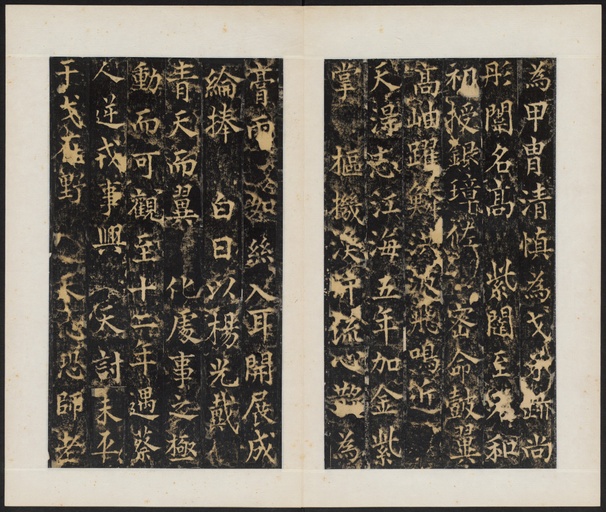 為甲冑清慎為戈矛踰尚
彤闈名高 紫闥至元和
初授銀璋佐 密命鼓翼
高岫躍鱗洪波飛鳴近
天蕩志江海五年加金紫
掌 樞機決升流心幣為
膏雨 如絲入耳開展成
綸捧 白日以揚光戴
青天而翼 化處事之極
動而可觀至十二年遇蔡
人逆戎事興 天討未平
于戈在野 恐師老